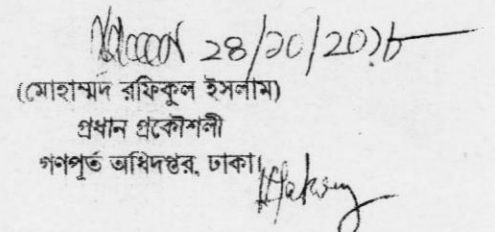 ২৪/১০/২০১৮
(মোহাম্মদ রফিকুল ইসলাম)
প্রধান প্রকৌশলী
গণপূর্ত অধিদপ্তর, ঢাকা।